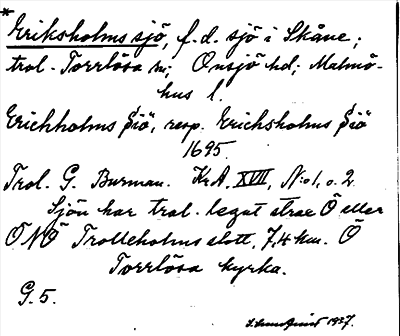 *Eriksholms sjö, f.d. sjö i Skåne;
trol. Torrlösa sn; Onsjö hd; Malmö-
hus l.
Erichholms Siö, resp. Erichsholms Siö
1695.
Trol. G. Burman. KrA. XVII, N:o 1, o. 2.
Sjön har trol. legat strax Ö eller
ÖNÖ Trolleholms slott, 7,4 km. Ö
Torrlösa kyrka.
G. 5.
1937.